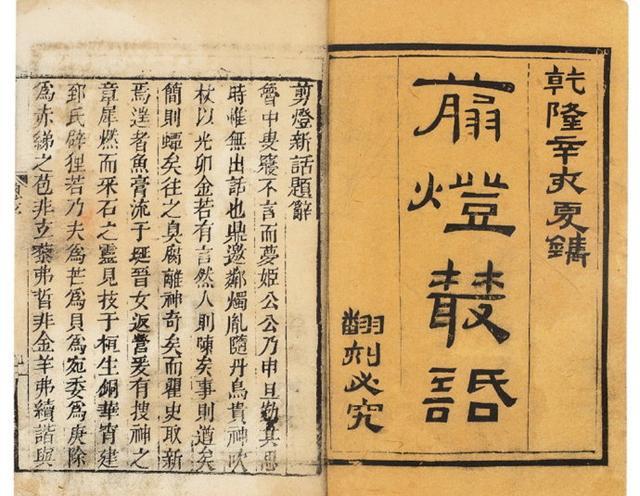 乾隆辛亥夏鐫
翦燈叢話
翻刻必究
剪燈新話題辭
魯中叟寢不言而夢姬公公乃申旦勤其思
時惟無出話也鼎邀鄰燭胤隨丹鳥貴神吹
杖以光卯金若有言然人則陳矣事則道矣
簡則蟫矣往之臭腐離神奇矣而瞿史取新
焉逹者魚膏流于埏晉女返營爰有搜神之
章犀燃而采石之靈見技于桓生銅華宵建
郅氏辟狸若乃夫為芒為貝為宛委為庚除
為赤綈之芭非立藜弗晳非金羊弗續諧與